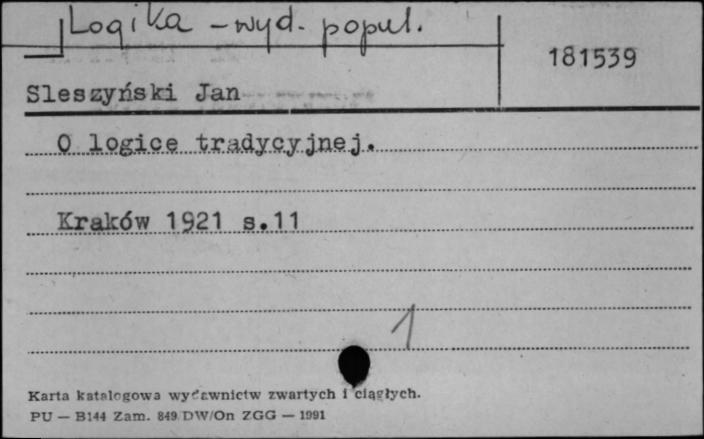 Logika - wyd. popul.
181539
Sleszyński Jan
O logice tradycyjnej.
Kraków 1921 s.11
1
Karta katalogowa wydawnictw zwartych i ciągłych.
PU — B144 Zam. 849 DW/On ZGG — 1991